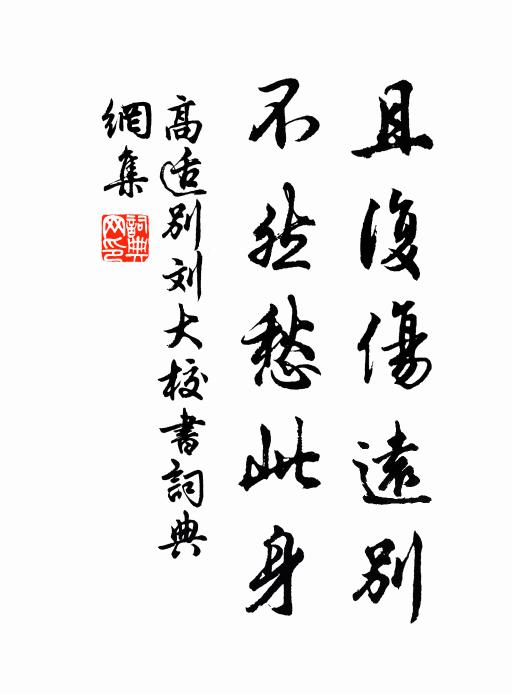 且復傷遠別
不然愁此身
高适別刘大校書詞典
網集
詞典
网印